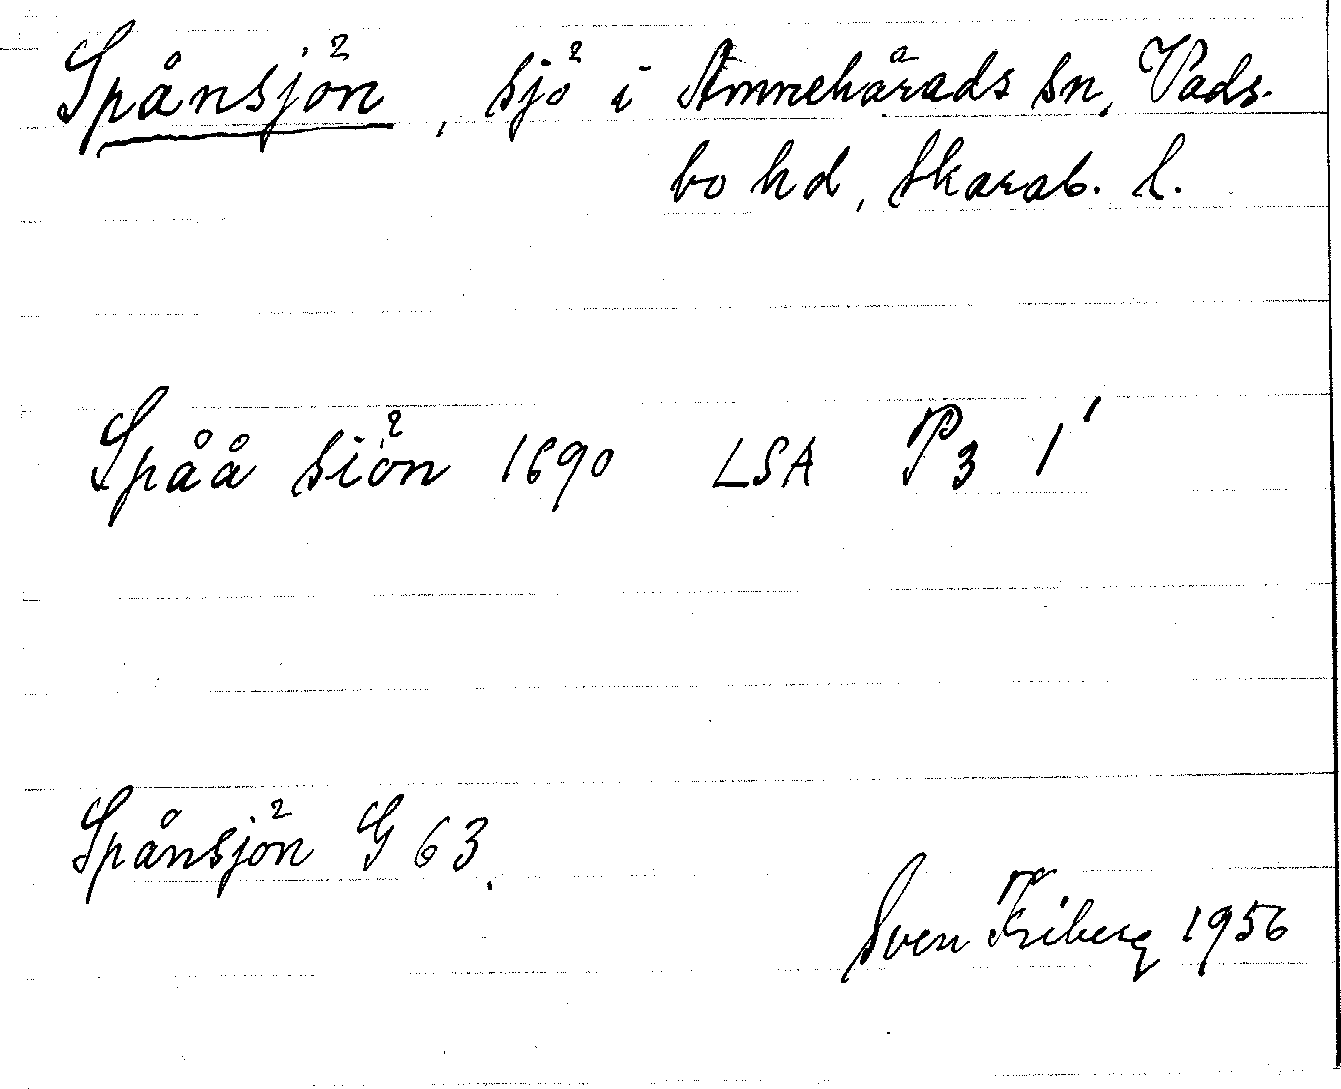 Spånsjön, sjö i Amnehärads sn, Vads-
bo hd, Skarab. l.
Spåå siön 1690 LSA P3 1'
Spånsjön G 63.
Sven Friberg 1956